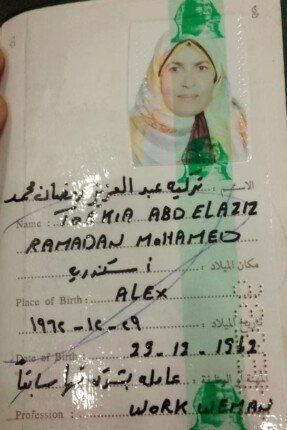 الاسم : تركيه عبد العزيز رمضان محمد
Name : TORKIA ABD ELAZIZ
RAMADAN MOHAMED
مكان الميلاد : اسكندرية
Place of Birth : ALEX
تاريخ الميلاد : ١٩٦٢ - ١٢ - ٢٩
Date of Birth : 29-12-1962
عامله بشركة سابقاً
Profession : WORK WEMAN